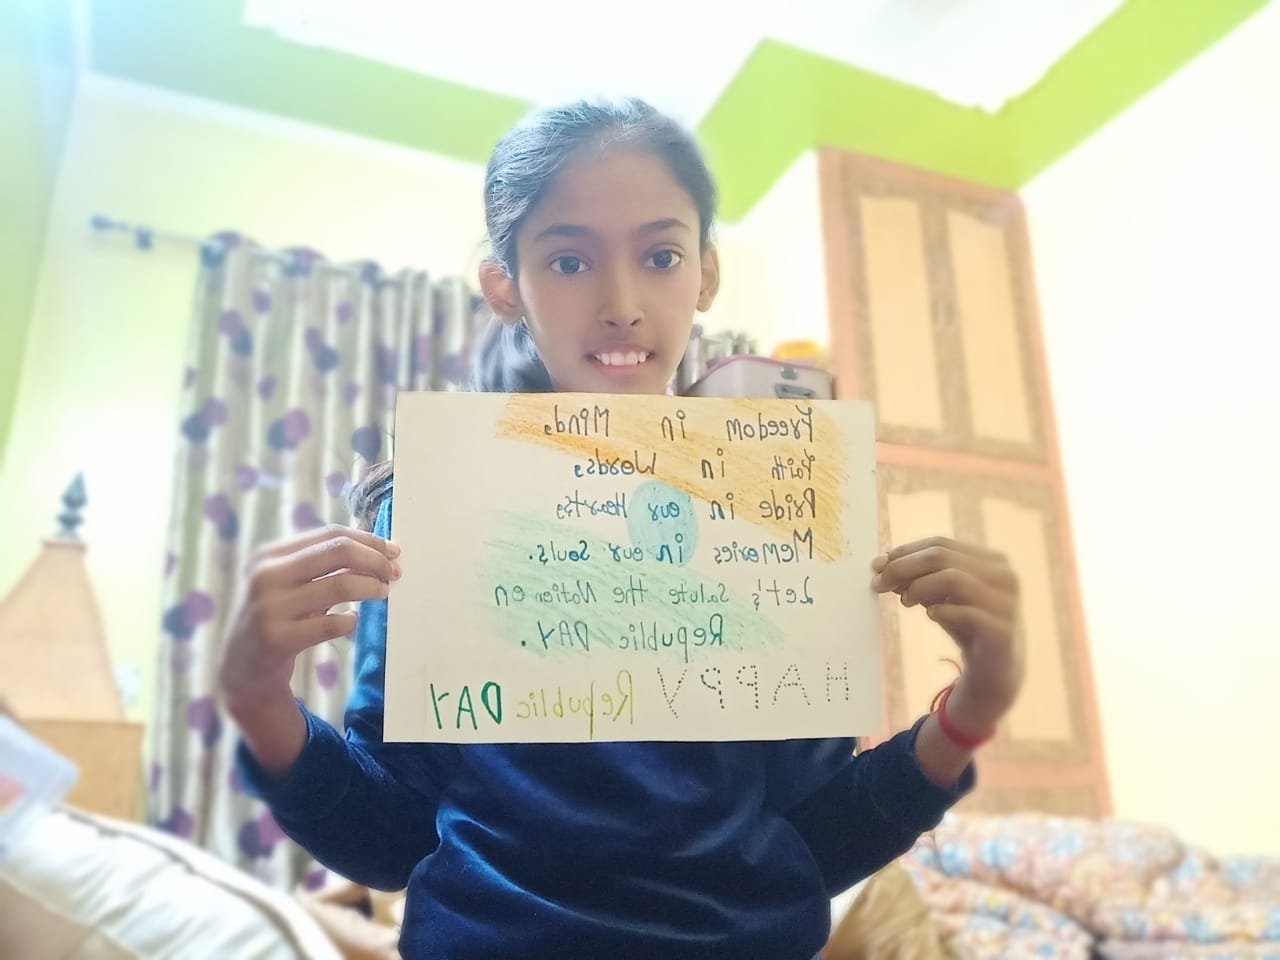 Freedom in Mind,
Faith in Words,
Pride in our Hearts,
Memories in our Souls.
Let's Salute the Nation on
Republic DAY.
HAPPY Republic DAY